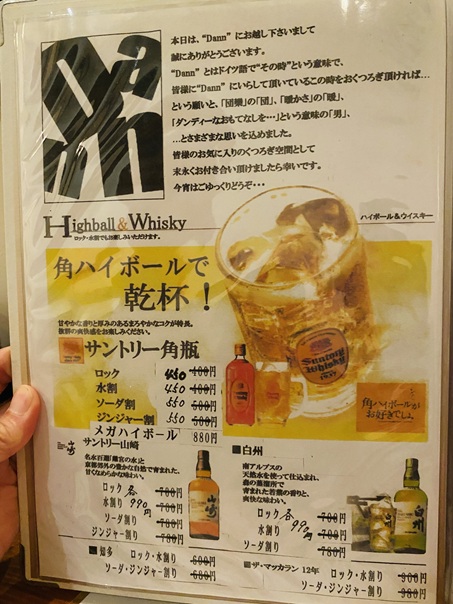 Dann
本日は、“Dann” にお越し下さいまして
誠にありがとうございます。
“Dann” とはドイツ語で“その時”という意味で、
皆様に“Dann” にいらして頂いているこの時をおくつろぎ頂ければ…
という願いと、「団欒」の「団」、「暖かさ」の「暖」、
「ダンディーなおもてなしを・・・」という意味の「男」、
…とさまざまな思いを込めました。
皆様のお気に入りのくつろぎ空間として
末永くお付き合い頂けましたら幸いです。
今宵はごゆっくりどうぞ・・・
Highball&Whisky
ハイボール&ウイスキー
ロック・水割でもお楽しみいただけます。
角ハイボールで
乾杯！
甘やかな香りと厚みのあるまろやかなコクが特長。
復刻の爽快感をお楽しみください。
サントリー角瓶
ロック 450 400円
水割 450 400円
ソーダ割 550 500円
ジンジャー割 550 500円
メガハイボール 880円
Suntory
Whisky
角ハイボールが
お好きでしょ
山崎
サントリー山崎
名水百選「離宮の水」と
京都郊外の豊かな自然で育まれた、
甘くなめらかな味わい。
ロック 各 700円
水割り 990円 700円
ソーダ割り 780円
ジンジャー割り 780円
山崎
■白州
南アルプスの
天然水を使って仕込まれ、
森の蒸溜所で
育まれた若葉の香りと、
爽快な味わい。
ロック 各 700円
水割り 990円 700円
ソーダ割り 780円
白州
■知多 ロック・水割り 600円
ソーダ・ジンジャー割り 680円
■ザ・マッカラン 12年 ロック・水割り 900円
ソーダ・ジンジャー割り 980円